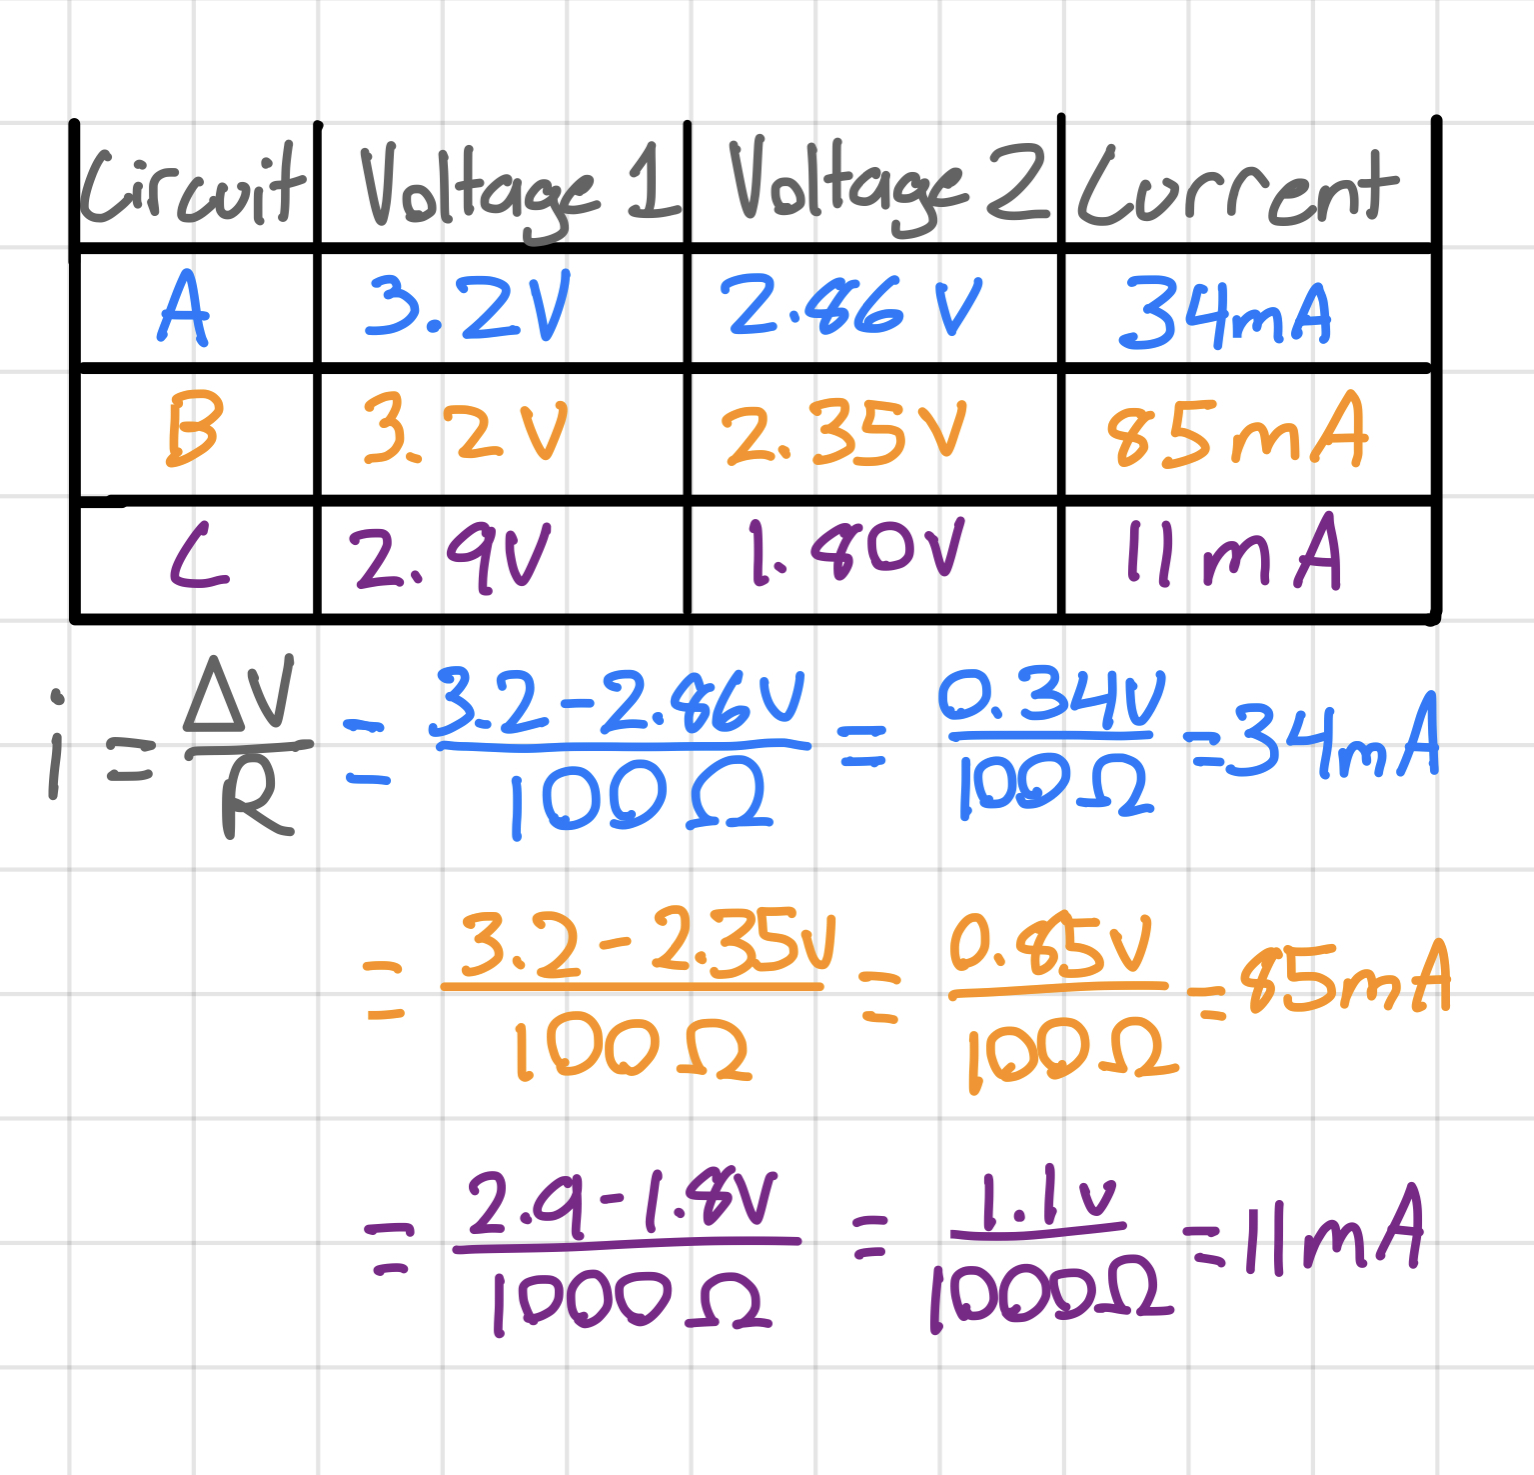 Circuit Voltage 1 Voltage 2 Current
A 3.2V 2.86 V 34mA
B 3.2 V 2.35 V 85 mA
C 2.9V 1.80V 11 mA
i = ΔV/R = 3.2-2.86V/100Ω = 0.34V/100Ω = 34mA
= 3.2-2.35V/100Ω = 0.85V/100Ω = 85mA
= 2.9-1.8V/1000Ω = 1.1V/1000Ω = 11mA